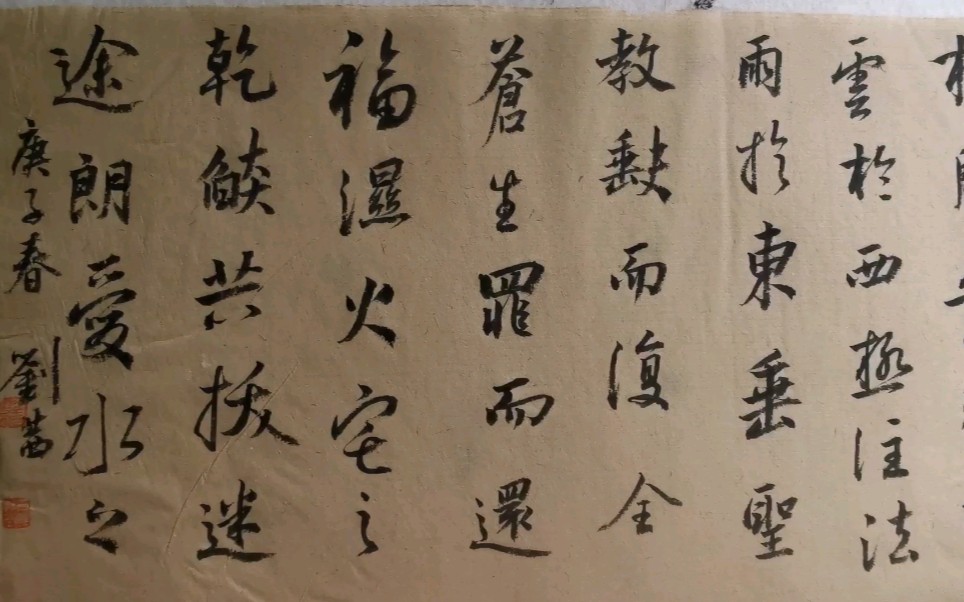 雲於西極注法
雨於東垂聖
教缺而復全
蒼生罪而還
福濕火宅之
乾燄共拔迷
途朗愛水之
庚子春 劉